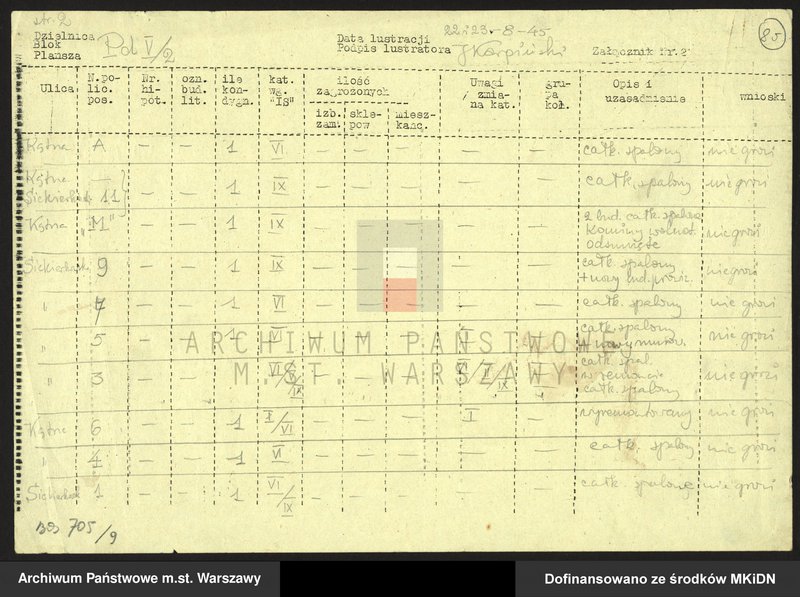 str. 2
Dzielnica
Blok Poł V/2
Plansza
Data lustracji 22 i 23-8-45
Podpis lustratora JKarpiński
Załącznik Nr.2
85
Ulica N.polic.pos. Nr.hipot. ozn.bud.lit. ile kondygn. kat.wg."IS" ilość zagrożonych izb.zam. sklepow mieszkanc. Uwagi zmiana kat. grupa koł. Opis i uzasadnienie wnioski
Kątna A — — 1 VI — — — — — całk. spalony nie grozi
Kątna —
Siekierkowska 11 — — 1 IX — — — — — całk. spalony nie grozi
Kątna "M" — — 1 IX — — — — — 2 bud. całk. spalone
Kominy wolnost. nie grozi
Odsunięte
Siekierkowska 9 — — 1 IX — — — — — całk. spalony nie grozi
+ nowy bud.
" 7 — — 1 VI — — — — — całk. spalony nie grozi
" 5 — — 1 VI — — — I — całk. spalony nie grozi
+ nowy murow.
" 3 — — 1 VI/IX — — — całk. spal. nie grozi
w remoncie
całk. spalony
Kątna 6 — — 1 I/VI — — — I — wyremontowany nie grozi
" 4 — — 1 VI — — — — — całk. spalony nie grozi
Siekierkowska 1 — — 1 VI/IX — — — — — całk. spalone nie grozi
BOS 705/9
ARCHIWUM PAŃSTWOWE
M.ST. WARSZAWY
Archiwum Państwowe m.st. Warszawy
Dofinansowano ze środków MKiDN